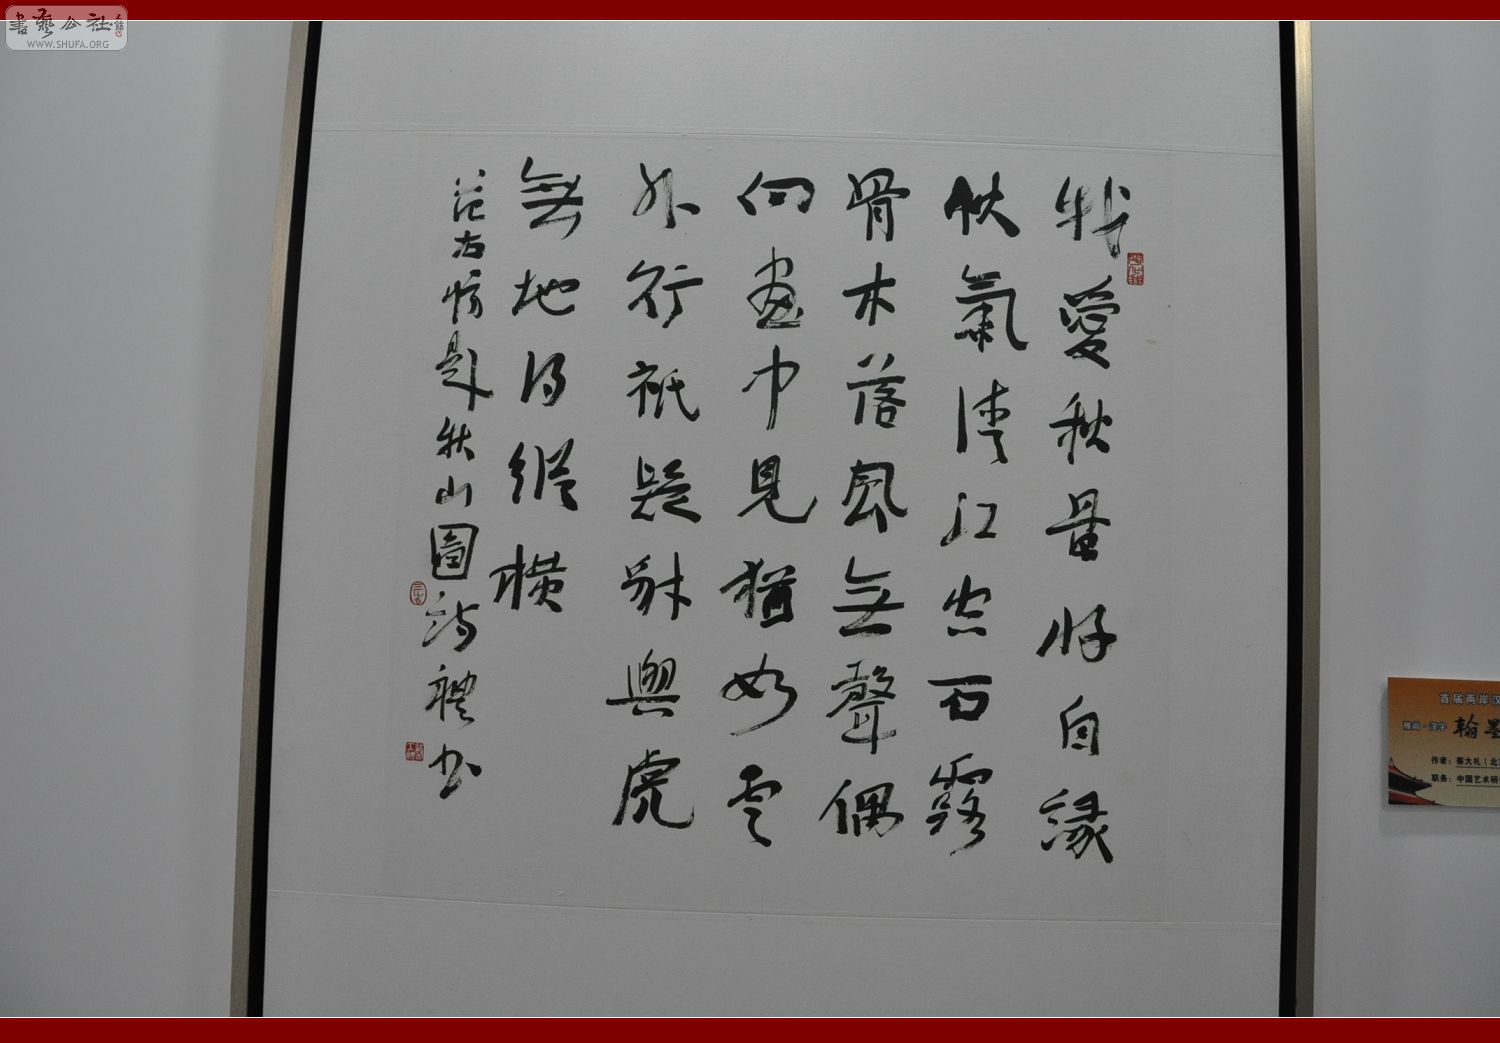 書藝公社
WWW.SHUFA.ORG
我愛秋量好自緣
秋氣清江空石露
骨木落風無聲偶
向畫中見猶如雲
外行祇疑豺與虎
無地得縱橫
范右題秋山圖詩禮书
首届两岸汉
雅尚·汉字 翰墨
作者：秦大礼（北
职务：中国艺术研